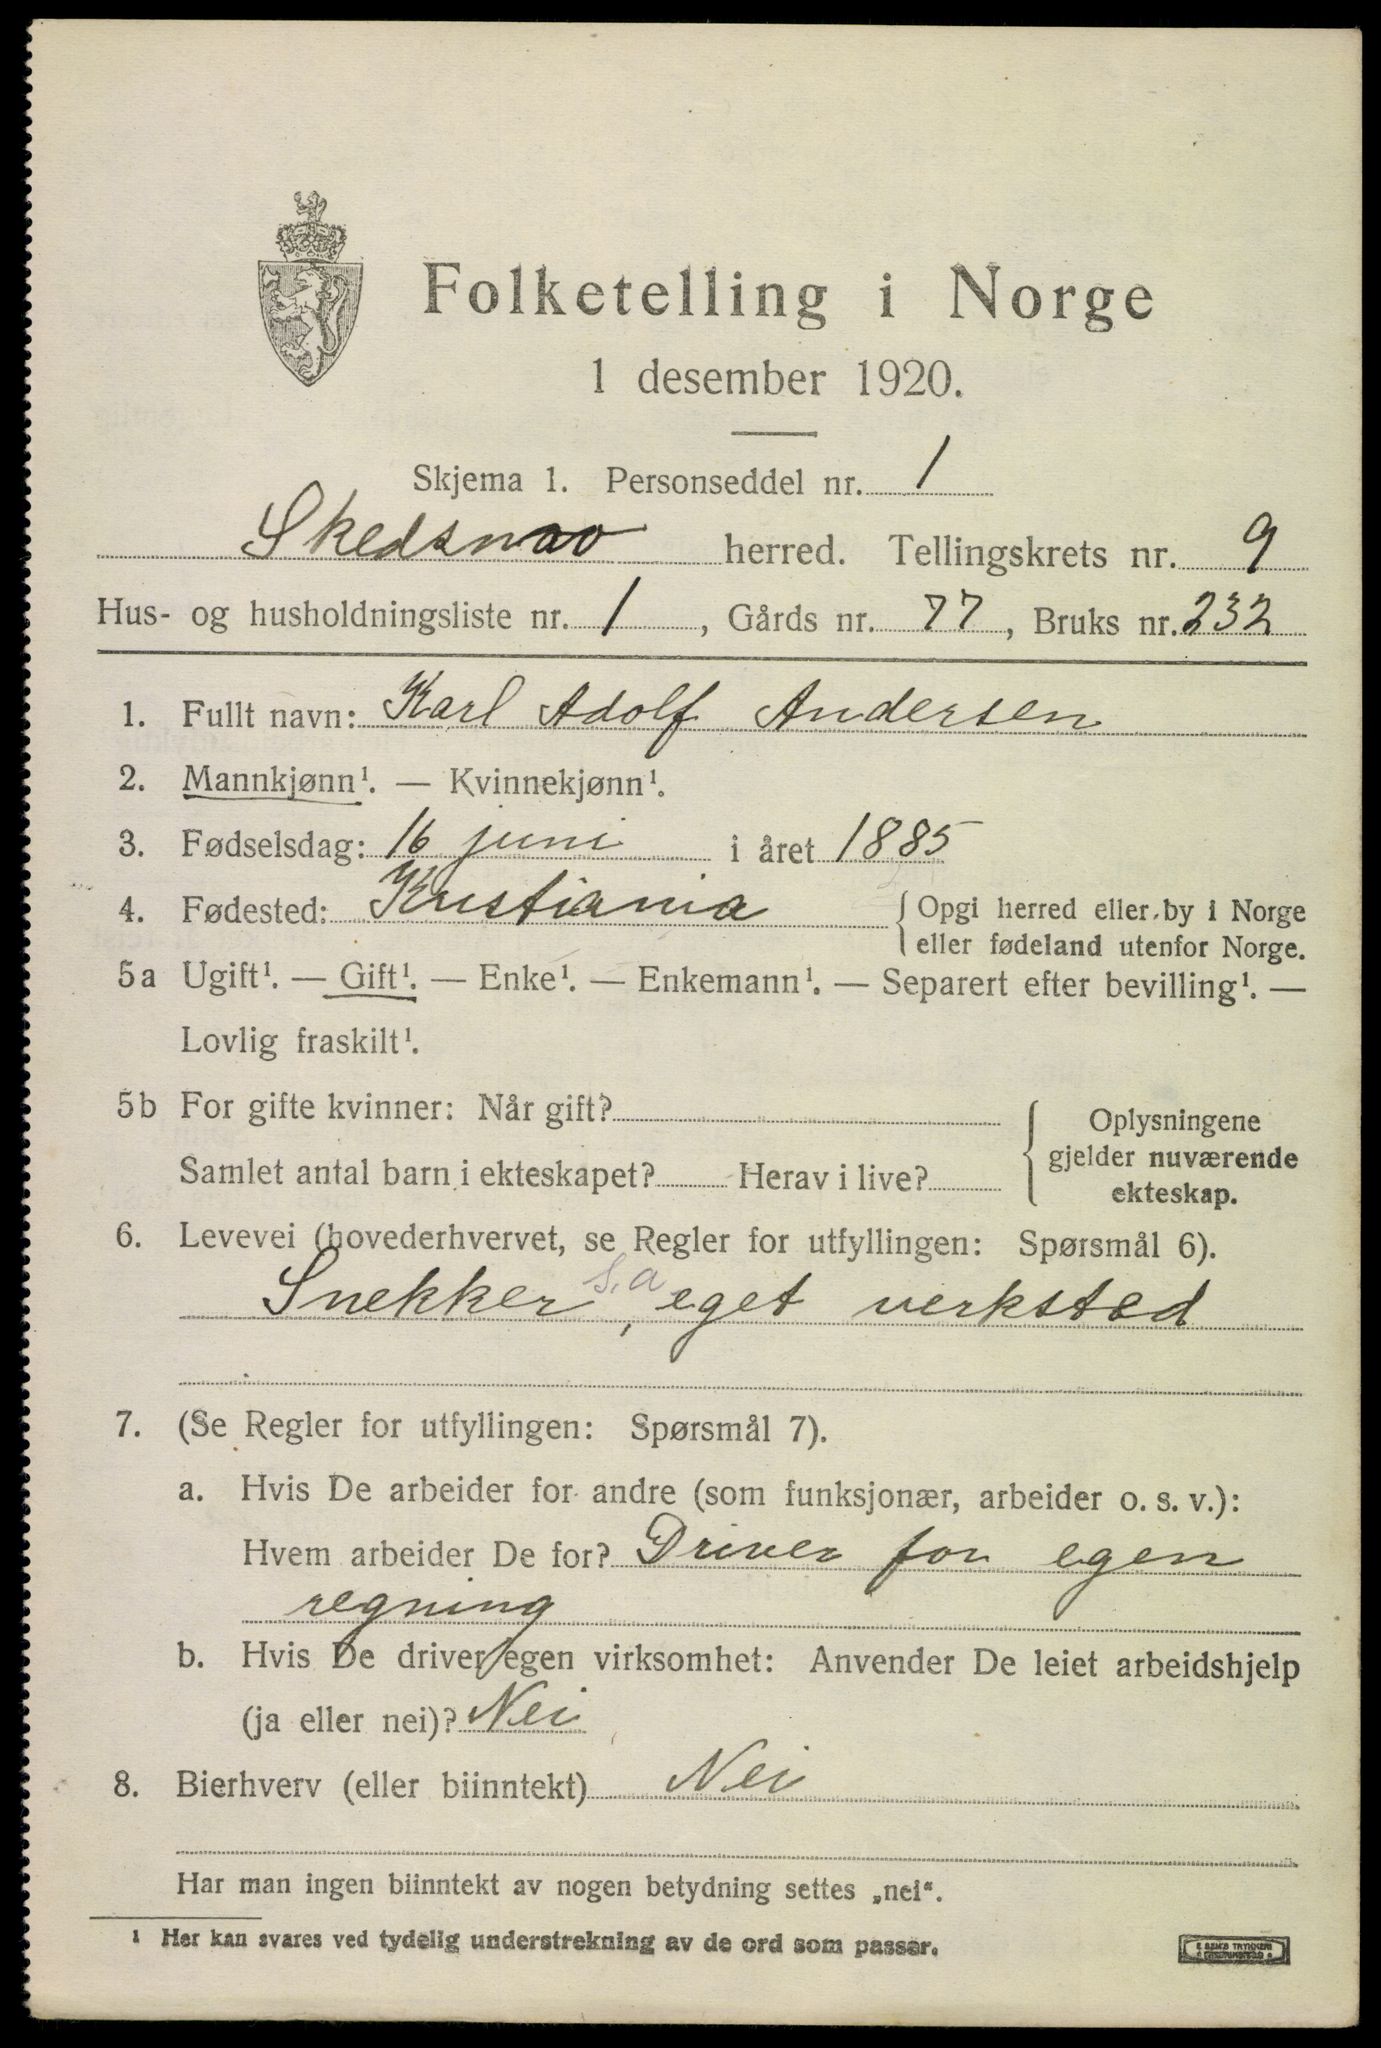 Folketelling i Norge
1 desember 1920.
Skjema 1. Personseddel nr. 1
Skedsmo herred. Tellingskrets nr. 9
Hus- og husholdningsliste nr. 1, Gårds nr. 77, Bruks nr. 232
1. Fullt navn: Karl Adolf Andersen
2. Mannkjønn¹. — Kvinnekjønn¹.
3. Fødselsdag: 16 juni i året 1885
4. Fødested: Kristiania { Opgi herred eller by i Norge
eller fødeland utenfor Norge.
5a Ugift¹. — Gift¹. — Enke¹. — Enkemann¹. — Separert efter bevilling¹. —
Lovlig fraskilt¹.
5b For gifte kvinner: Når gift?
Samlet antal barn i ekteskapet? Herav i live?
{ Oplysningene
gjelder nuværende
ekteskap.
6. Levevei (hovederhvervet, se Regler for utfyllingen: Spørsmål 6).
s.a
Snekker, eget verksted
7. (Se Regler for utfyllingen: Spørsmål 7).
a. Hvis De arbeider for andre (som funksjonær, arbeider o. s. v.):
Hvem arbeider De for? Driver for egen
regning
b. Hvis De driver egen virksomhet: Anvender De leiet arbeidshjelp
(ja eller nei)? Nei
8. Bierhverv (eller biinntekt) Nei
Har man ingen biinntekt av nogen betydning settes „nei“.
¹ Her kan svares ved tydelig understrekning av de ord som passer.